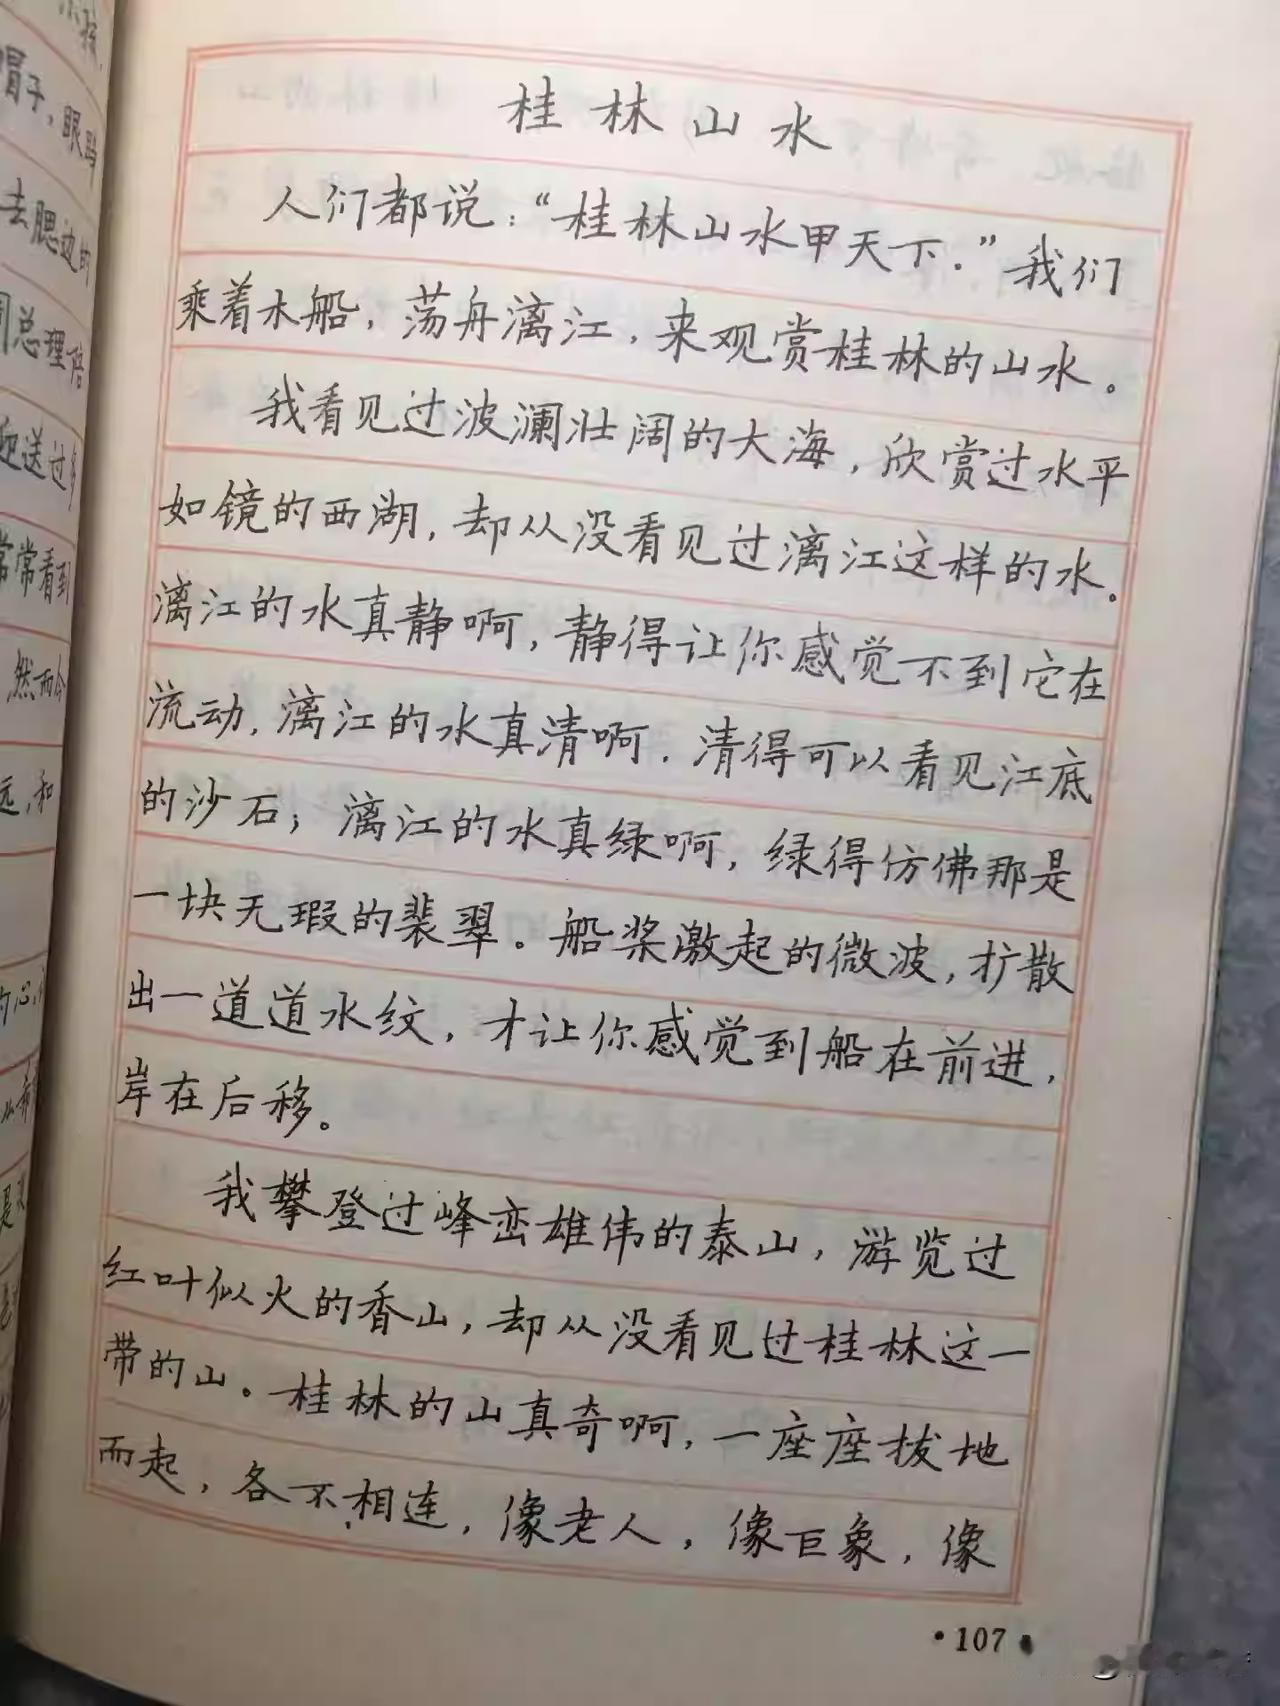 桂林山水
人们都说：“桂林山水甲天下.”我们
乘着木船，荡舟漓江，来观赏桂林的山水。
我看见过波澜壮阔的大海，欣赏过水平
如镜的西湖，却从没看见过漓江这样的水。
漓江的水真静啊，静得让你感觉不到它在
流动，漓江的水真清啊．清得可以看见江底
的沙石；漓江的水真绿啊，绿得仿佛那是
一块无瑕的裴翠。船桨激起的微波，扩散
出一道道水纹，才让你感觉到船在前进，
岸在后移。
我攀登过峰峦雄伟的泰山，游览过
红叶似火的香山，却从没看见过桂林这一
带的山。桂林的山真奇啊，一座座拔地
而起，各不相连，像老人，像巨象，像
·107·
帽子，眼
去腮边的
总理陪
迎送过多
常常看到
然而今
远，和